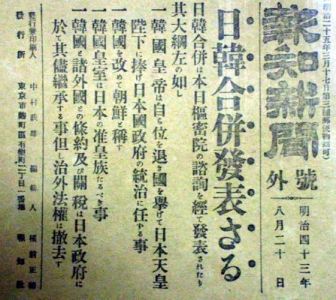 報知新聞
號外
明治四十三年
八月二十日
日韓合併發表さる
日韓合併は本日樞密院の諮詢を經て發表されたり
其大綱左の如し
一韓國皇帝は自ら位を退き國を擧げて日本天皇
陛下に捧げ日本國政府の統治に任かす事
一韓國を改めて朝鮮と稱す
一韓國皇室は日本の准皇族たるべき事
一韓國と諸外國との條約及び關稅は日本政府に
於て其儘繼承する事但し治外法權は撤去す
發行兼印刷人 中村 編輯人
發行所 東京市麹町區有樂町 丁目一番地 報知社